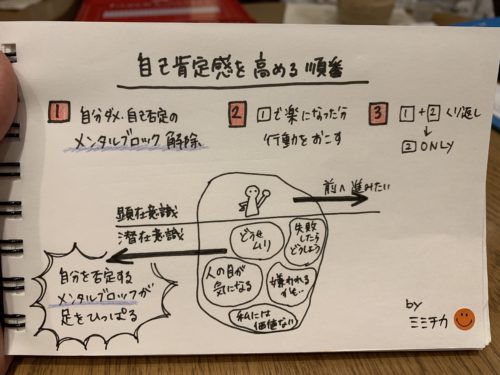 自己肯定感を高める順番
1 自分ダメ・自己否定の
メンタルブロック解除
2 1で楽になった分
行動をおこす
3 1+2くり返し
↓
2 ONLY
前へ進みたい
顕在意識
潜在意識
どうせ
ムリ
失敗
したら
どうしよう
人の目が
気になる
嫌われる
かも…
私には
価値ない
自分を否定する
メンタルブロックが
足をひっぱる
by
ミミチカ